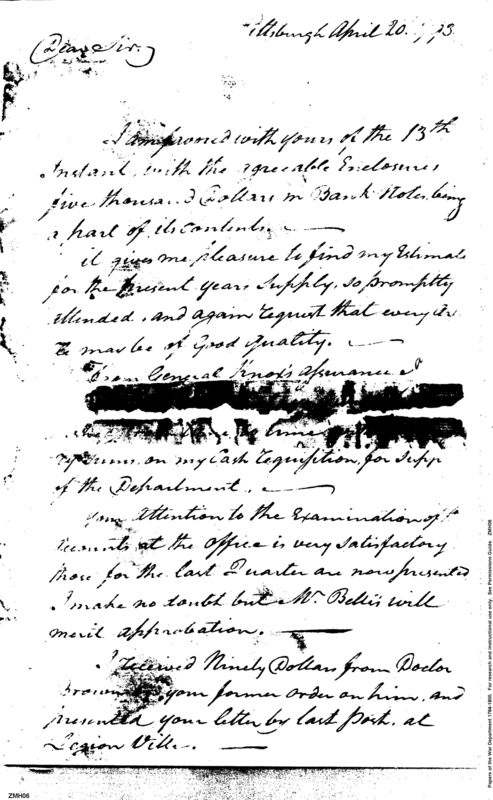 Pittsburgh April 20. 1793
Dear Sir,
I am favored with yours of the 13th
Instant, with the agreeable Enclosures
five thousand Dollars in Bank Notes, being
a part of its contents.
it gives me pleasure to find my Estimate
for the present years Supply, so promptly
attended, and again request that every Ar
may be of Good Quality.
From General Knox's assurance
time
on my Cash requisition, for Supp
of the Department.
Your attention to the Examination of
Accounts at the office is very satisfactory
those for the last Quarter are now presented
I make no doubt but Mr. Bellis will
merit approbation.
I received Ninety Dollars from Doctor
Brown by your former order on him, and
presented your letter by last Post, at
Legion Ville.
ZMH06
Papers of the War Department 1784-1800. For research and instructional use only. See Permissions Guide. ZMH06